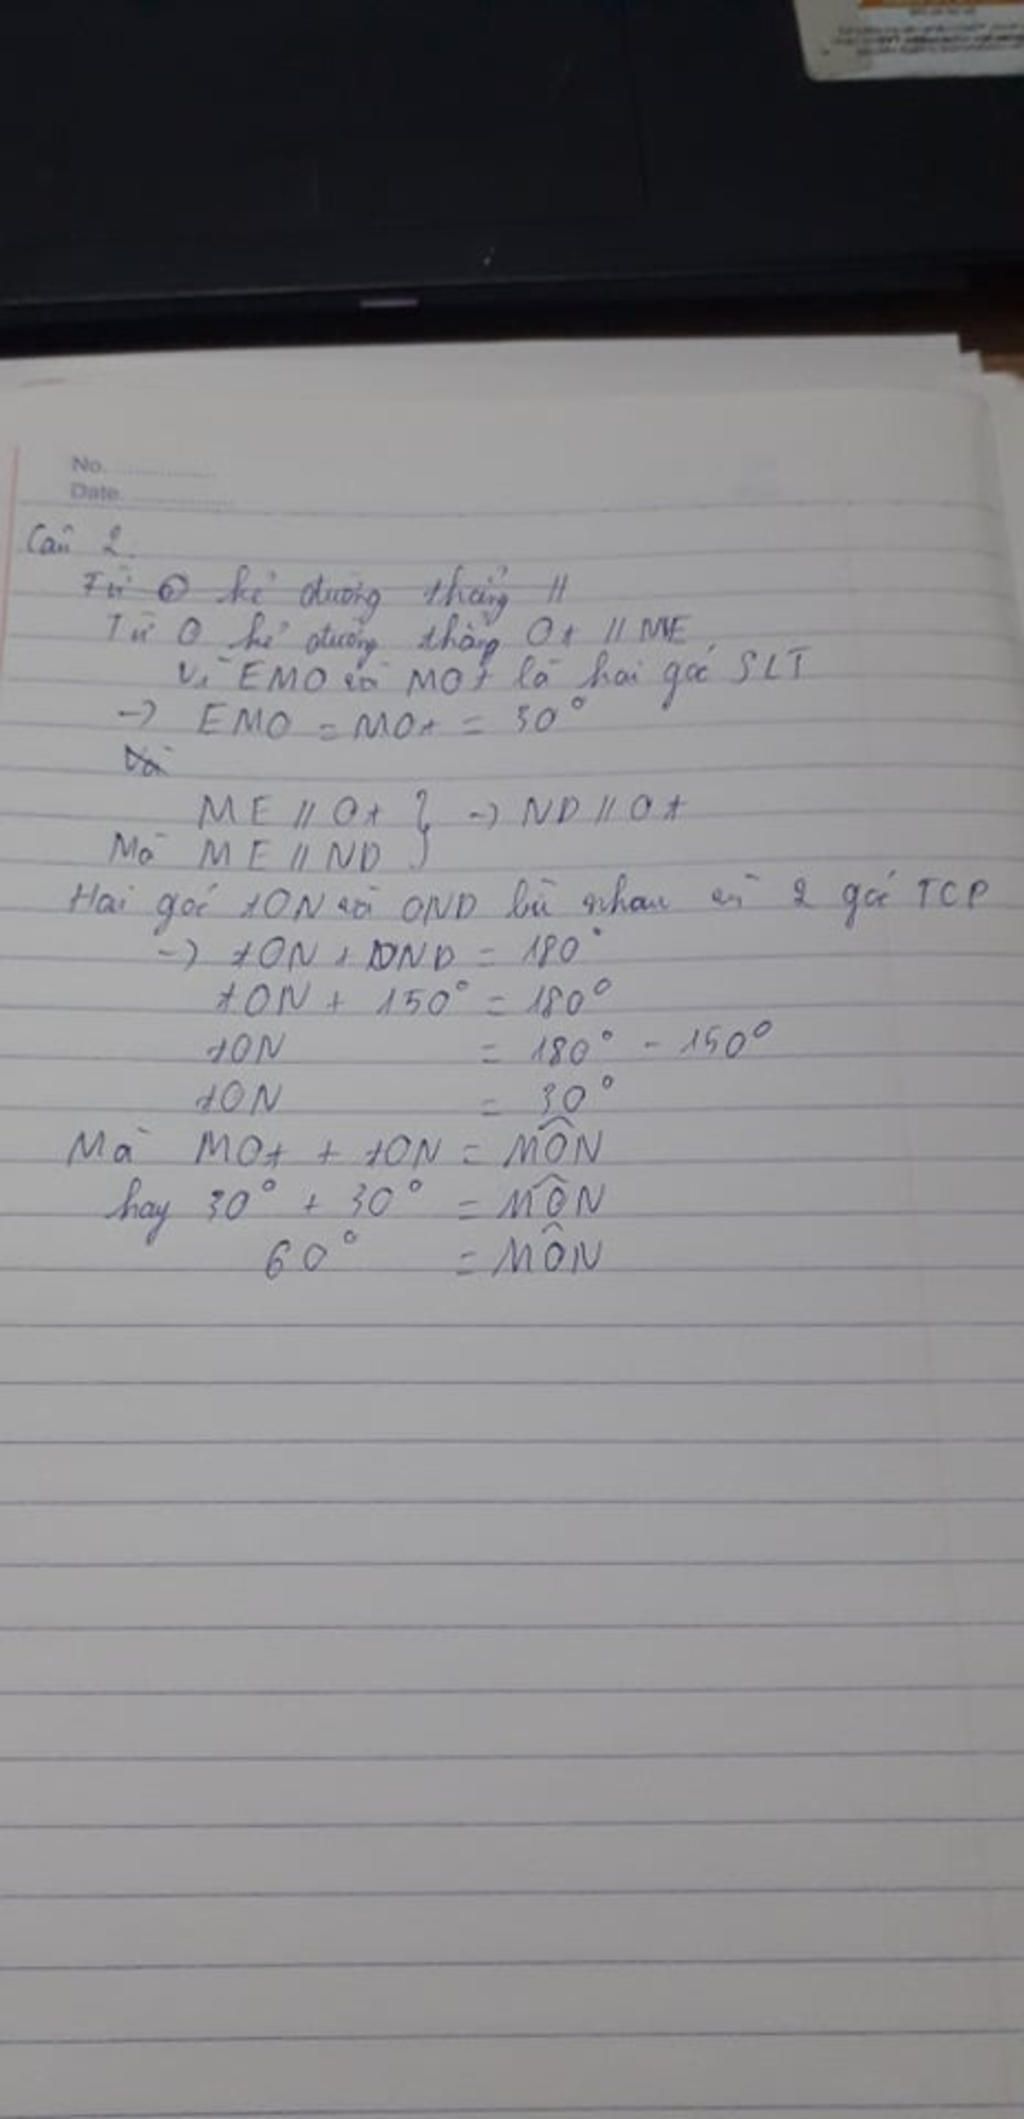 No.
Date.
Câu 2.
Từ O kẻ đường thẳng //
Từ O kẻ đường thẳng Ot // ME
Vì EMO và MOt là hai góc SLT
-> EMO = MOt = 30°
Và
ME // Ot } -> ND // Ot
Mà ME // ND
Hai góc tON và OND bù nhau vì 2 góc TCP
-> tON + OND = 180°
tON + 150° = 180°
tON = 180° - 150°
tON = 30°
Mà MOt + tON = MÔN
hay 30° + 30° = MÔN
60° = MÔN